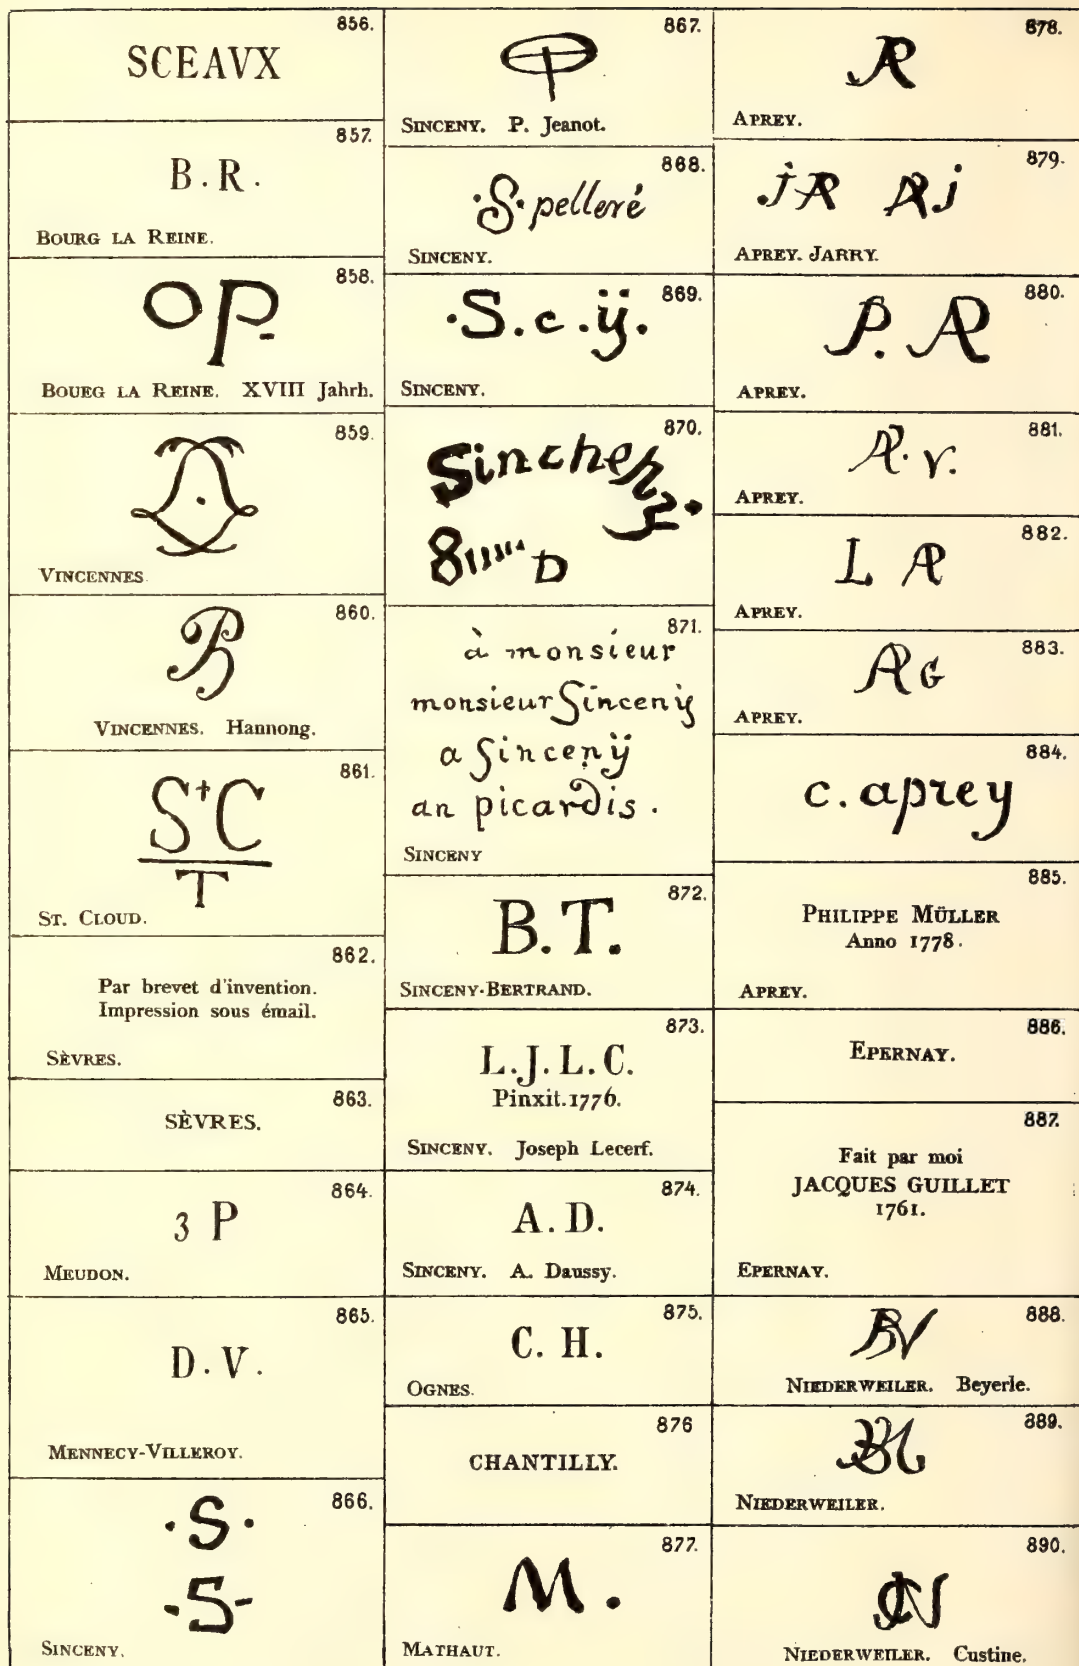 856.
SCEAVX
857.
B. R.
BOURG LA REINE.
858.
OP.
BOUEG LA REINE. XVIII Jahrh.
859.
VINCENNES
860.
VINCENNES. Hannong.
861.
S+C
T
ST. CLOUD.
862.
Par brevet d'invention.
Impression sous émail.
SÈVRES.
863.
SÈVRES.
864.
3 P
MEUDON.
865.
D. V.
MENNECY-VILLEROY.
866.
·S·
-S-
SINCENY.
867.
SINCENY. P. Jeanot.
868.
·S· pelleré
SINCENY.
869.
·S.c.ÿ.
SINCENY.
870.
Sincheny.
8''''' D
871.
à monsieur
monsieur Sincenÿ
a Sincenÿ
an picardis.
SINCENY
872.
B. T.
SINCENY-BERTRAND.
873.
L. J. L. C.
Pinxit. 1776.
SINCENY. Joseph Lecerf.
874.
A. D.
SINCENY. A. Daussy.
875.
C. H.
OGNES.
876
CHANTILLY.
877.
M.
MATHAUT.
878.
AR
APREY.
879.
jAR ARj
APREY. JARRY.
880.
P. AP
APREY.
881.
AP. v.
APREY.
882.
L AP
APREY.
883.
AR G
APREY.
884.
c. aprey
885.
PHILIPPE MÜLLER
Anno 1778.
APREY.
886.
EPERNAY.
887.
Fait par moi
JACQUES GUILLET
1761.
EPERNAY.
888.
BN
NIEDERWEILER. Beyerle.
889.
NIEDERWEILER.
890.
CN
NIEDERWEILER. Custine.